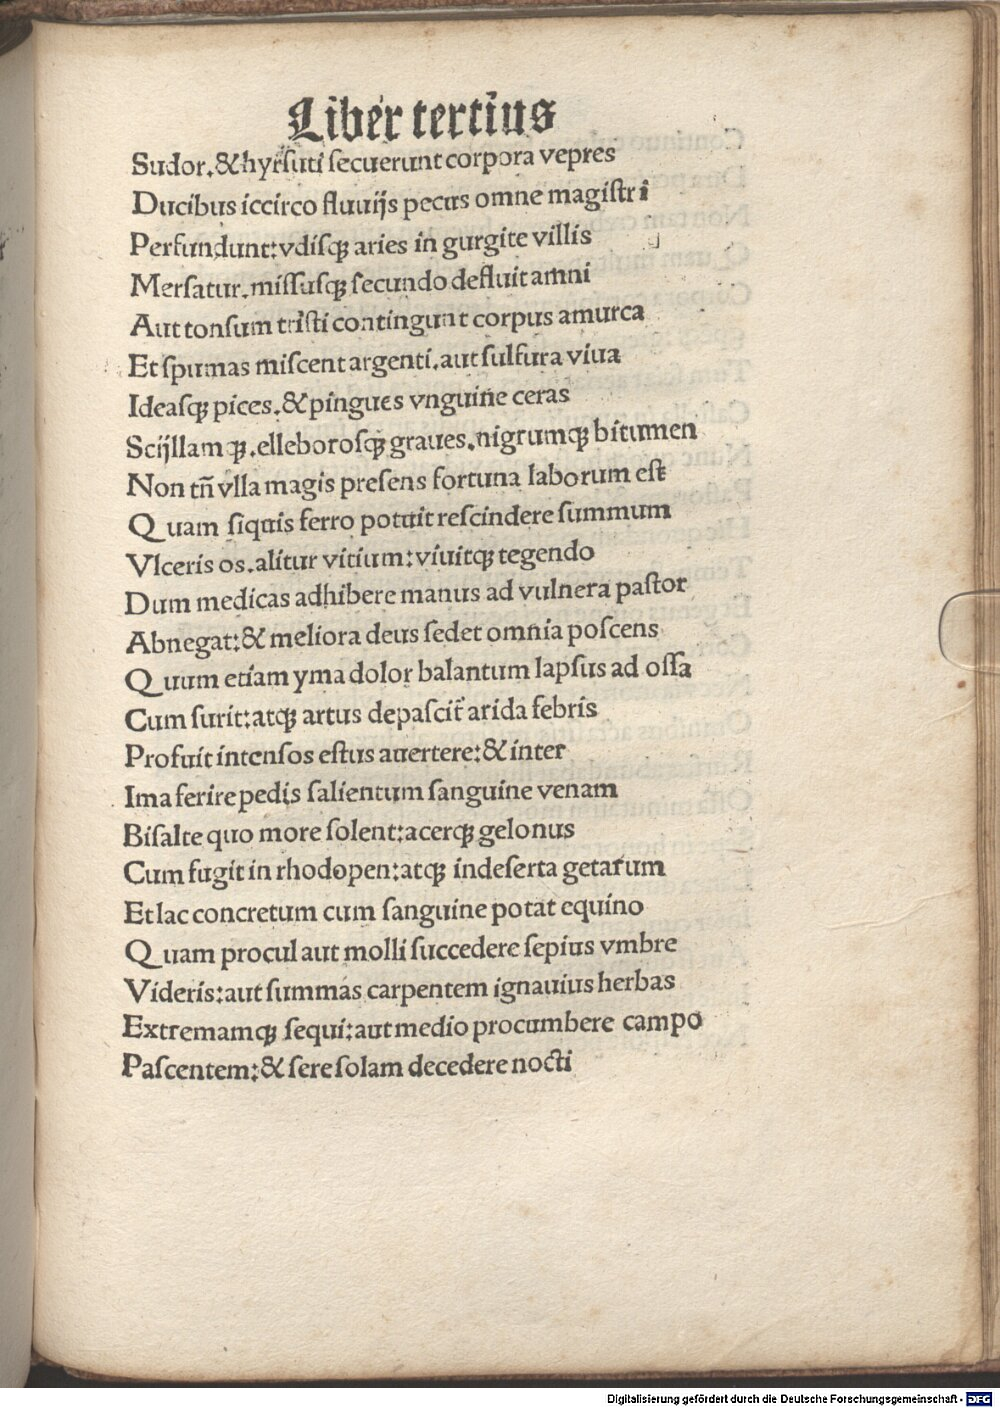 Liber tertius
Sudor.&hyrſuti ſecuerunt corpora vepres
Ducibus iccirco fluuijs pecus omne magiſtri
Perfundunt:vdiſqꝫ aries in gurgite villis
Merſatur.miſſuſqꝫ ſecundo defluit amni
Aut tonſum triſti contingunt corpus amurca
Et ſpumas miſcent argenti.aut ſulfura viua
Ideaſqꝫ pices.&pingues vnguine ceras
Scijllamqꝫ.elleboroſqꝫ graues.nigrumqꝫ bitumen
Non tñ vlla magis preſens fortuna laborum eſt
Quam ſiquis ferro potuit reſcindere ſummum
Vlceris os.alitur vitium:viuitqꝫ tegendo
Dum medicas adhibere manus ad vulnera paſtor
Abnegat:& meliora deus ſedet omnia poſcens
Quum etiam yma dolor balantum lapſus ad oſſa
Cum furit:atqꝫ artus depaſcit̃ arida febris
Profuit intenſos eſtus auertere:& inter
Ima ferire pedis ſalientum ſanguine venam
Biſalte quo more ſolent:acerqꝫ gelonus
Cum fugit in rhodopen:atqꝫ indeſerta getarum
Et lac concretum cum ſanguine potat equino
Quam procul aut molli ſuccedere ſepius vmbre
Videris:aut ſummas carpentem ignauius herbas
Extremamqꝫ ſequi:aut medio procumbere campo
Paſcentem:& ſere ſolam decedere nocti
Digitalisierung gefördert durch die Deutsche Forschungsgemeinschaft - DFG